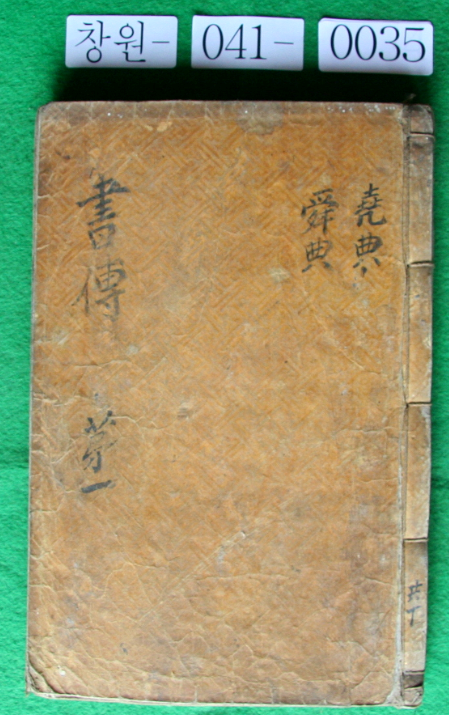 창원-041-0035
堯典
舜典
書傳 苐一